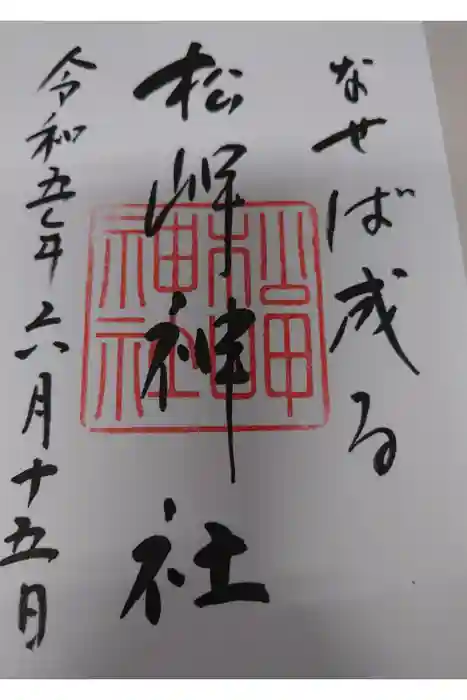 なせば成る
松岬神社
松岬神社
令和五年六月十五日